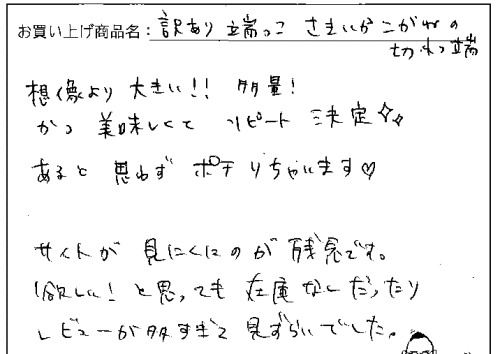 お買い上げ商品名：訳あり 端っこ さきいか こがねの
切れっ端
想像より 大きい!! 多量!
かつ 美味しくて リピート 決定✧✧
あると 思わず ポチりちゃいます♡
サイトが 見にくいのが 残念です。
欲しい! と思っても 在庫なしだったり
レビューが多すぎて 見ずらいでした。